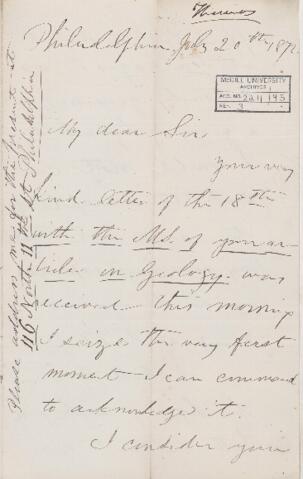 Philadelphia, July 20th 1872
McGILL UNIVERSITY
ARCHIVES
ACC. NO.
REF.
My dear Sir
Your very
kind letter of the 18th
with the MS. of your ar-
ticles on Geology was
received this morning
I seize the very first
moment I can command
to acknowledge it.
I consider your
Please address me for the present at
116 North 11th St Philadelphia